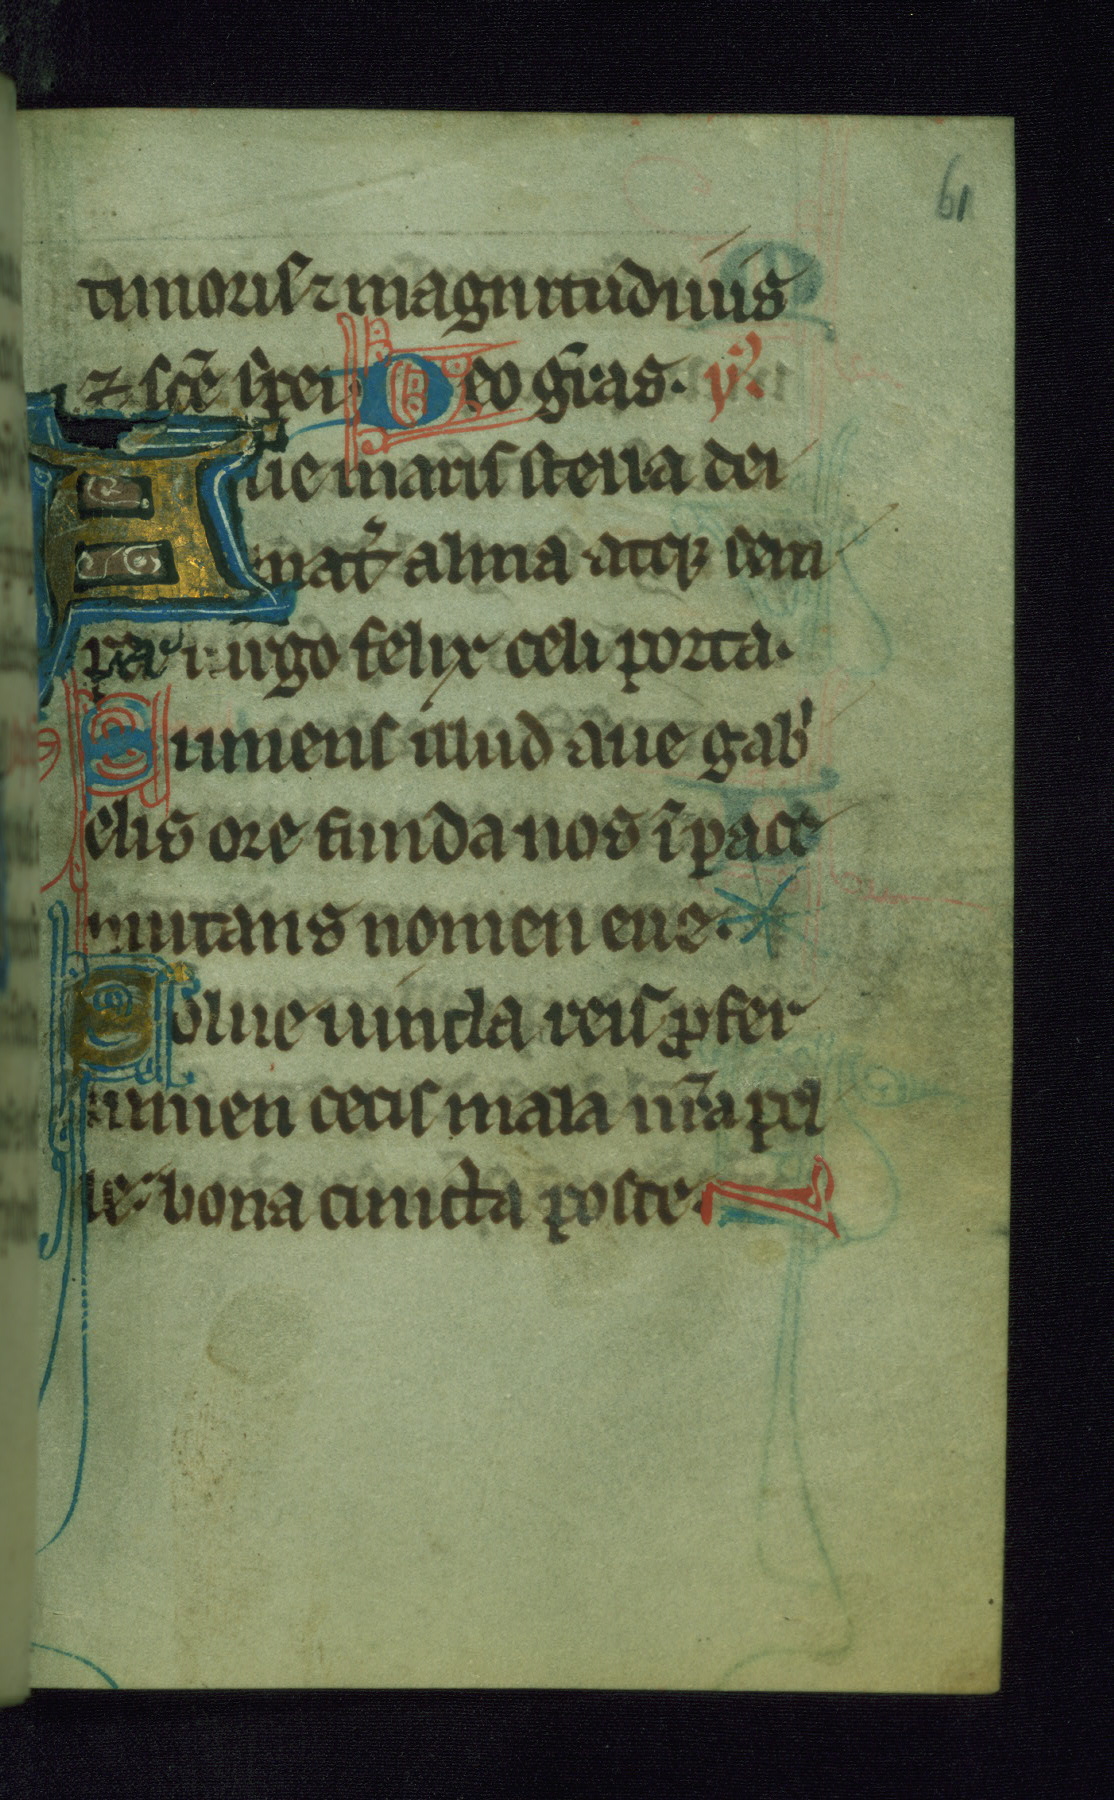 61
timoris ⁊ magnitudinis
⁊ scē sp̄ei Deo gr̄as. ym̄.
Aue maris stella dei
mat̄ alma atq; sem
per uirgo felix celi porta.
Sumens illud aue gab'
elis ore funda nos ī pace
mutans nomen eue.
Solue uincla reis ꝓfer
lumen cecis mala nr̄a pel
le. bona cuncta posce.